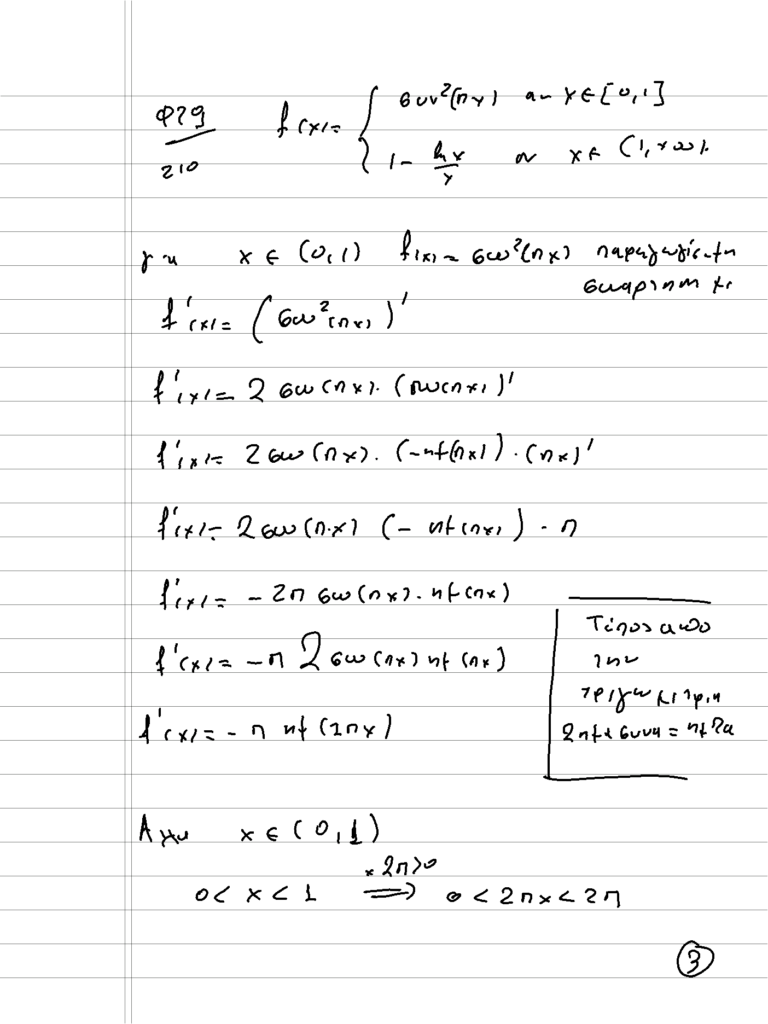 Φ29
210
f(x) = { συν²(πx) αν x ∈ [0,1]
1 - lnx/x αν x ∈ (1,+∞).
για x ∈ (0,1) f(x) = συν²(πx) παραγωγίσιμη
συνάρτηση με
f'(x) = (συν²(πx))'
f'(x) = 2 συν(πx). (συν(πx))'
f'(x) = 2 συν(πx). (-ημ(πx)) . (πx)'
f'(x) = 2 συν(π.x) (- ημ(πx)) . π
f'(x) = - 2π συν(πx). ημ(πx)
f'(x) = -π 2 συν(πx) ημ(πx)
f'(x) = - π ημ(2πx)
Τύπος από
την
τριγωνομετρία
2ημα συνα = ημ2α
x ∈ (0,1)
0 < x < 1 ⟹ × 2π>0 0 < 2πx < 2π
3